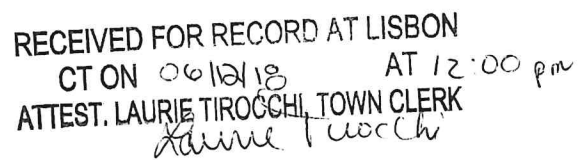 RECEIVED FOR RECORD AT LISBON
CT ON 06/12/18 AT 12:00 pm
ATTEST. LAURIE TIROCCHI, TOWN CLERK
Laurie Tirocchi